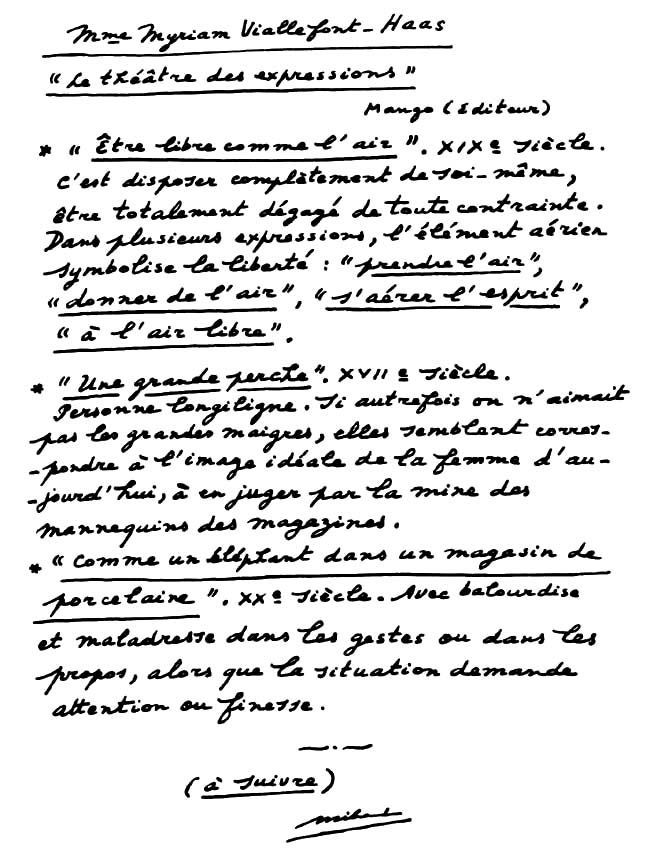 Mme Myriam Viallefont-Haas
"Le théâtre des expressions"
Mango (Editeur)
* "Être libre comme l'air". XIXe siècle.
C'est disposer complètement de soi-même,
être totalement dégagé de toute contrainte.
Dans plusieurs expressions, l'élément aérien
symbolise la liberté : "prendre l'air",
"donner de l'air", "s'aérer l'esprit",
"à l'air libre".
* "Une grande perche". XVII e siècle.
Personne longiligne. Si autrefois on n'aimait
pas les grandes maigres, elles semblent corres-
-pondre à l'image idéale de la femme d'au-
-jourd'hui, à en juger par la mine des
mannequins des magazines.
* "Comme un éléphant dans un magasin de
porcelaine". XXe siècle. Avec balourdise
et maladresse dans les gestes ou dans les
propos, alors que la situation demande
attention ou finesse.
(à suivre)